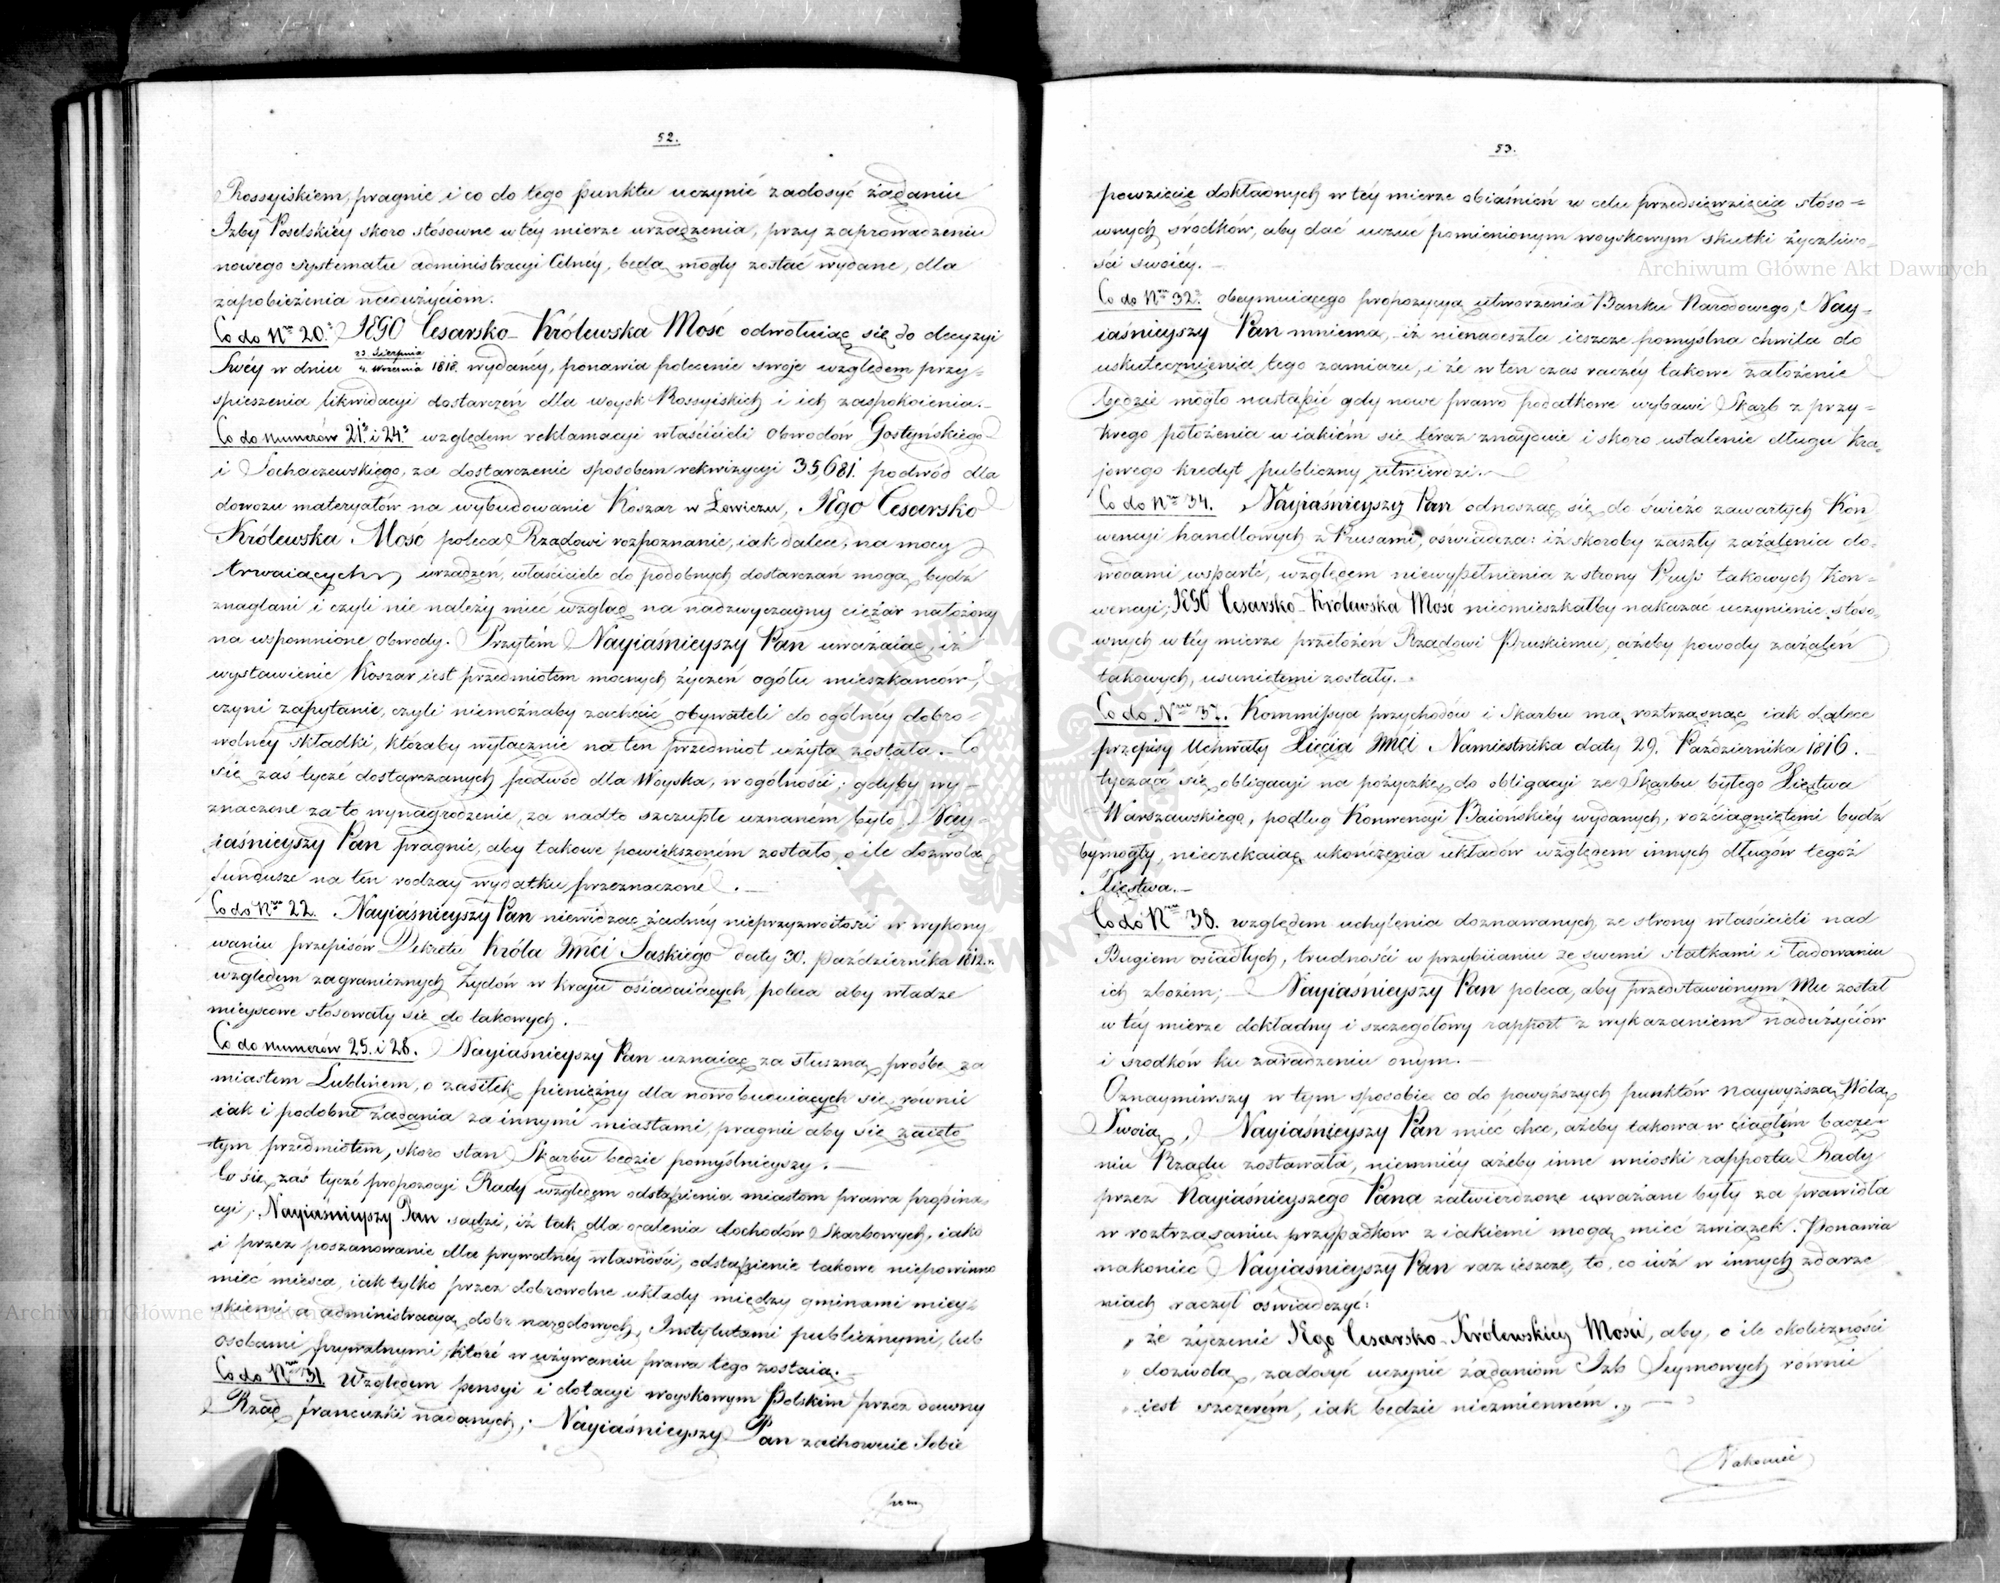 52.
Rossyiskiem, pragnie i co do tego punktu uczynić zadosyć żądaniu
Izby Poselskiéy skoro stósowne w téy mierze urządzenia, przy zaprowadzeniu
nowego systematu administracyi Celnéy, będą mogły zostać wydane, dla
zapobieżenia nadużyciom.
Co do Nru 20. JEGO Cesarsko-Królewska Mość odwołuiąc się do decyzyi
Swéy w dniu 23. Sierpnia / 4. Września 1818. wydanéy, ponawia polecenie swoje względem przy-
spieszenia likwidacyi dostarczeń dla woysk Rossyiskich i ich zaspokoienia.
Co do numerów 21. i 24. względem reklamacyi właścicieli obwodów Gostyńskiego
i Sochaczewskiego, za dostarczenie sposobem rekwizycyi 35,681. podwód dla
dowozu materyałów na wybudowanie Koszar w Łowiczu, JEgo Cesarsko
Królewska Mość poleca Rządowi rozpoznanie, iak dalece, na mocy
trwaiących urządzeń, właściciele do podobnych dostarczań mogą bydź
znaglani i czyli nie należy mieć wzgląd na nadzwyczayny ciężar nałożony
na wspomnione obwody. Przytém Nayiaśnieyszy Pan uważaiąc, iż
wystawienie Koszar iest przedmiotem mocnych życzeń ogółu mieszkańców,
czyni zapytanie, czyli niemożnaby zachęcić obywateli do ogólnéy dobro-
wolnéy składki, któraby wyłącznie na ten przedmiot użytą została. Co
się zaś tycze dostarczanych podwód dla Woyska, w ogólności; gdyby wy-
znaczone za to wynagrodzenie, za nadto szczupłe uznaném było, Nay-
iaśnieyszy Pan pragnie, aby takowe powiększoném zostało, o ile dozwolą
fundusze na ten rodzay wydatku przeznaczone.
Co do Nru 22. Nayiaśnieyszy Pan niewidząc żadnéy nieprzyzwoitości w wykony-
waniu przepisów Dekretu Króla JMCi Saskiégo daty 30. października 1812.
względem zagranicznych Żydów w kraju osiadaiących, poleca aby władze
mieyscowe stosowały się do takowych.
Co do numerów 25. i 28. Nayiaśnieyszy Pan uznaiąc za słuszną prośbę za
miastem Lublinem, o zasiłek pieniężny dla nowobuduiących się, równie
iak i podobne żądania za innymi miastami, pragnie aby się zaięto
tym przedmiotem, skoro stan Skarbu będzie pomyślnieyszy.
Co się zaś tycze propozycyi Rady względem odstąpienia miastom prawa propina-
cyi, Nayiaśnieyszy Pan sądzi, iż tak dla ocalenia dochodów Skarbowych, iako
i przez poszanowanie dla prywatnéy własności, odstąpienie takowe niepowinno
mieć mieysca, iak tylko przez dobrowolne układy między gminami miey-
skiemi a administracyą dobr narodowych, Instytutami publicznymi, lub
osobami prywatnymi, które w używaniu prawa tego zostaią.
Co do Nru 31. Względem pensyi i dotacyi woyskowym Polskim przez dawny
Rząd francuzki nadanych; Nayiaśnieyszy Pan zachowuie Sobie
pow
53.
powzięcie dokładnych w téy mierze obiaśnień w celu przedsięwzięcia stóso-
wnych środków, aby dać uczuć pomienionym woyskowym skutki życzliwo-
ści swoiéy.
Co do Nru 32. obeymuiącego propozycyą utworzenia Banku Narodowego, Nay-
iaśnieyszy Pan mniema, iż nienadeszła ieszcze pomyślna chwila do
uskutecznienia tego zamiaru, i że w ten czas raczéy takowe założenie
będzie mogło nastąpić gdy nowe prawo podatkowe wybawi Skarb z przy-
krego położenia w iakiém się téraz znayduie i skoro ustalenie długu kra-
jowego kredyt publiczny utwierdzi.
Co do Nru 34. Nayiaśnieyszy Pan odnosząc się do świéżo zawartych Kon-
wencyi handlowych z Prusami, oświadcza: iż skoroby zaszły zażalenia do-
wodami wsparté, względem niewypełnienia z strony Pruss takowych Kon-
wencyi; JEGO Cesarsko-Królewska Mość nieomieszkałby nakazać uczynienie stóso-
wnych w téy mierze przełożeń Rządowi Pruskiému, ażeby powody zażaleń
takowych, usuniętemi zostały.
Co do Nru 37. Kommissya przychodów i Skarbu ma roztrząsnąć iak dalece
przepisy Uchwały Xięcia JMCi Namiestnika daty 29. Października 1816.
tyczące się obligacyi na pożyczkę, do obligacyi ze Skarbu byłego Xięstwa
Warszawskiego, podług Konwencyi Baiońskiéy wydanych, rozciągniętemi bydź
bymogły, nieczekaiąc ukończenia układów względem innych długów tegoż
Xięstwa.
Co do Nru 38. względem uchylenia doznawanych ze strony właścicieli nad
Bugiem osiadłych, trudności w przybiianiu ze swemi statkami i ładowaniu
ich zbożem; Nayiaśnieyszy Pan poleca, aby przedstawionym Mu został
w téy mierze dokładny i szczegółowy rapport z wykazaniem nadużyciów
i srodków ku zaradzeniu onym.
Oznaymiwszy w tym sposobie co do powyższych punktów naywyższą Wolą
Swoią, Nayiaśnieyszy Pan mieć chce, ażeby takowa w ciągłém bacze-
niu Rządu zostawała, niemniéy ażeby inne wnioski rapportu Rady
przez Nayiaśnieyszego Pana zatwierdzone uważane były za prawidła
w roztrząsaniu przypadkow z iakiemi mogą mieć związek. Ponawia
nakoniec Nayiaśnieyszy Pan raz ieszcze, to, co iuż w innych zdarze
niach raczył oświadczyć:
„ że życzenie JEgo Cesarsko-Królewskiéy Mości, aby, o ile okoliczności
„ dozwolą, zadosyć uczynić żądaniom Izb Seymowych równie
„ iest szczerém, iak będzie niezmienném.„
Nakoniec
Archiwum Główne Akt Dawnych
Archiwum Główne Akt Dawnych